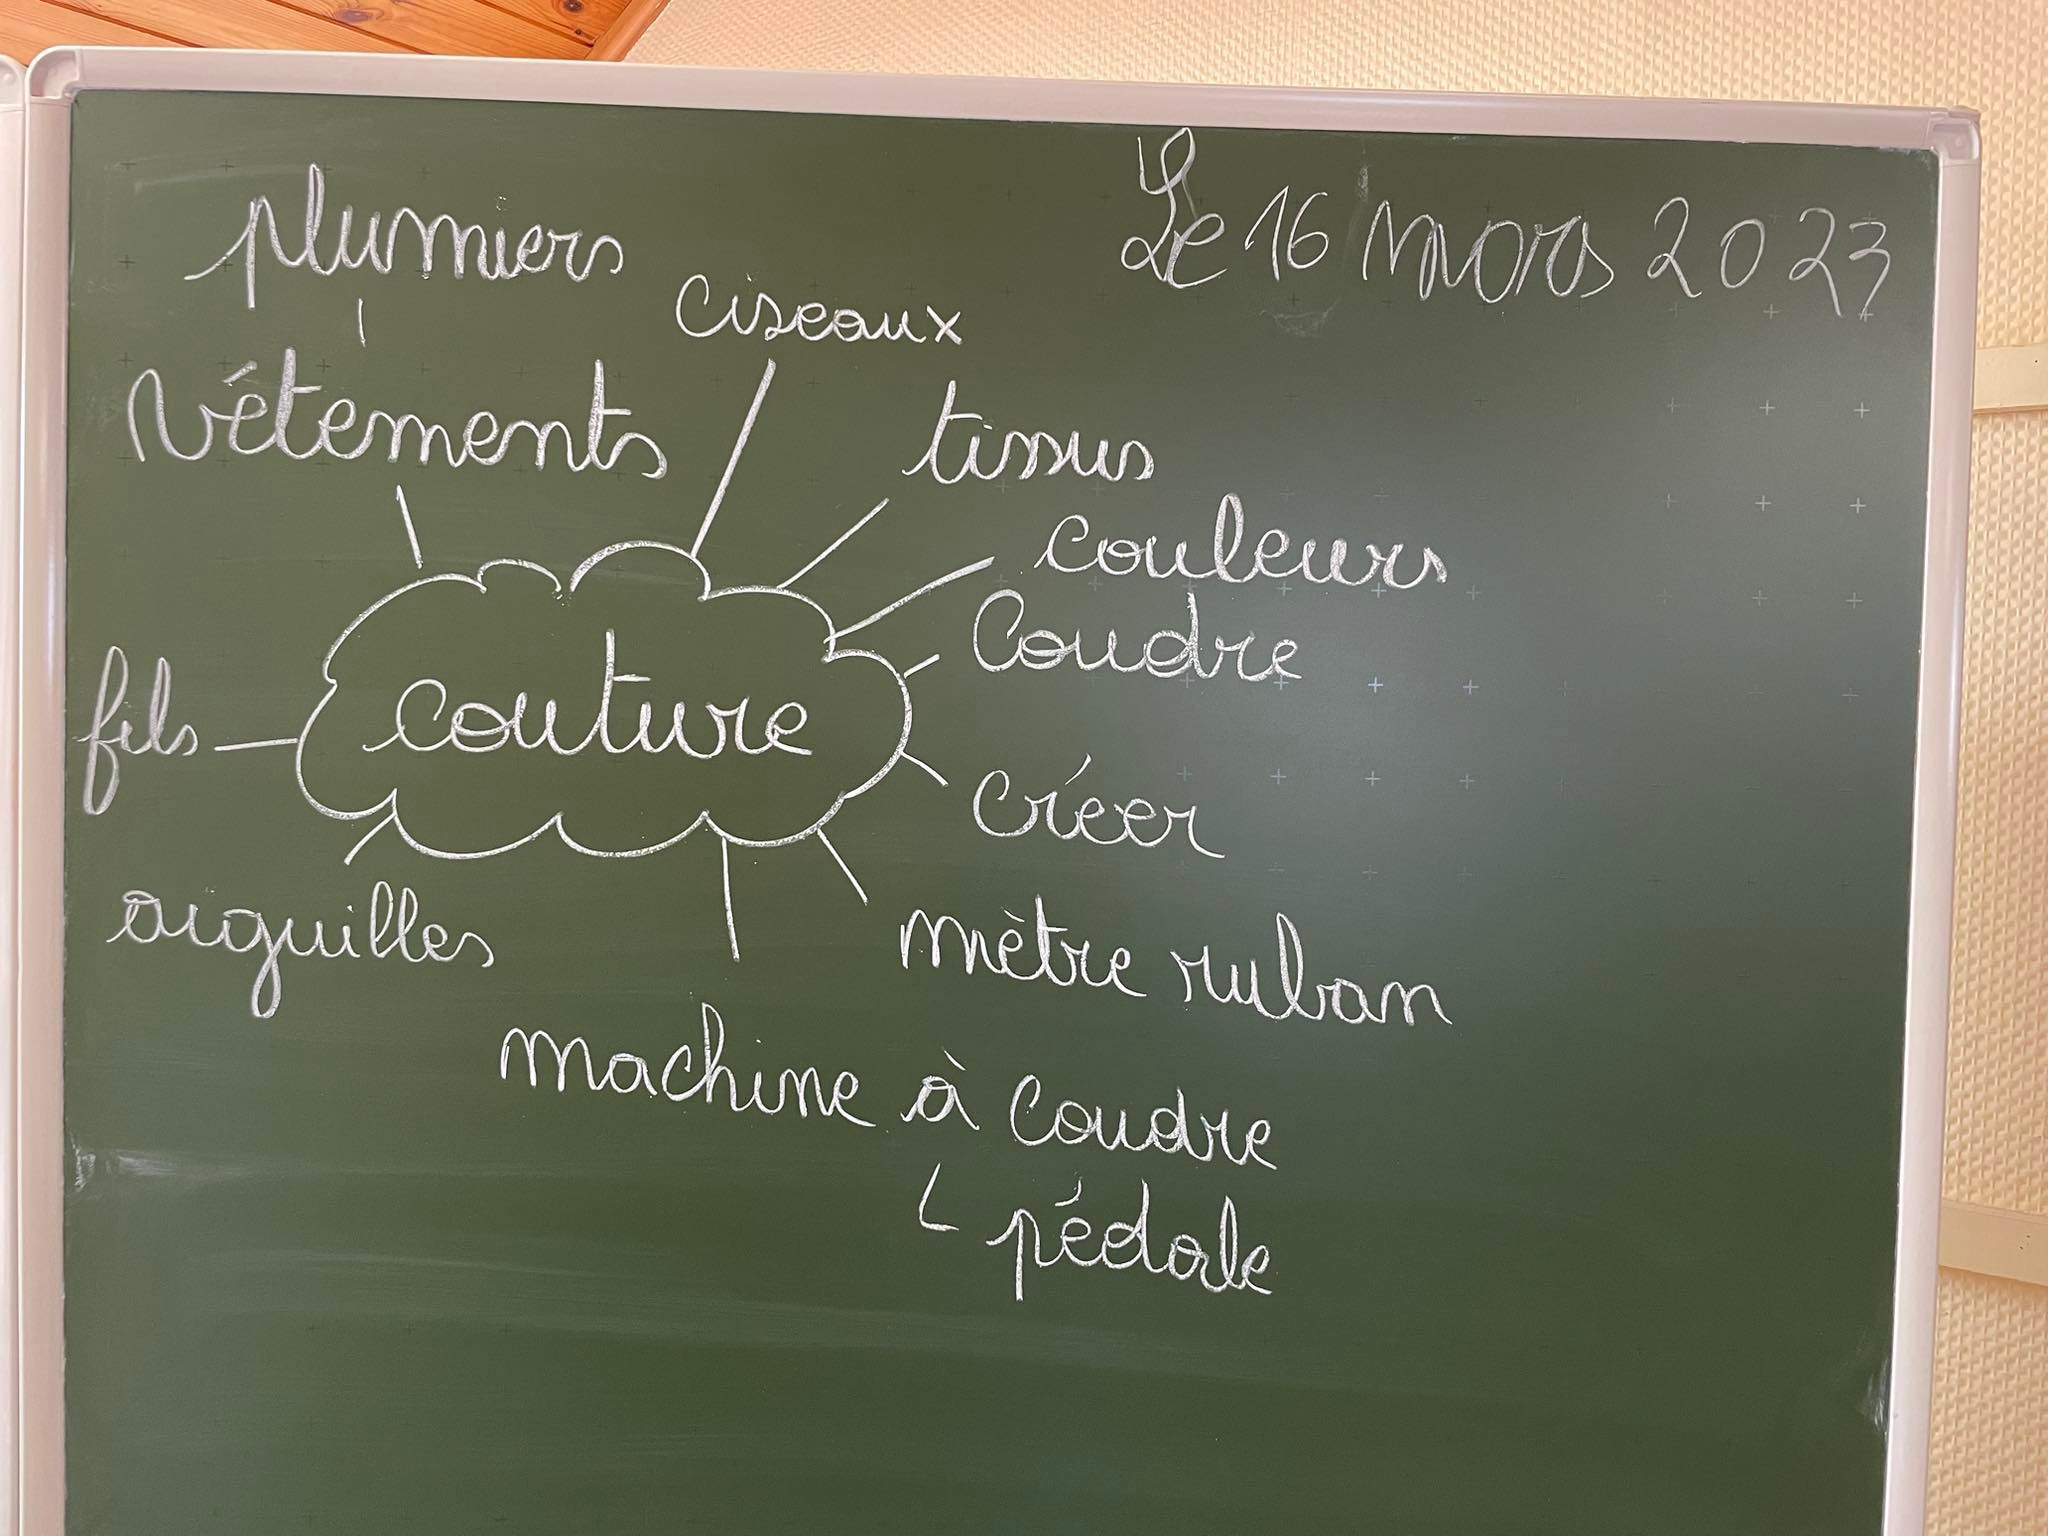 Le 16 mars 2023
plumiers
ciseaux
vétements
tissus
couleurs
Coudre
couture
fils
créer
aiguilles
mètre ruban
machine à coudre
pédale